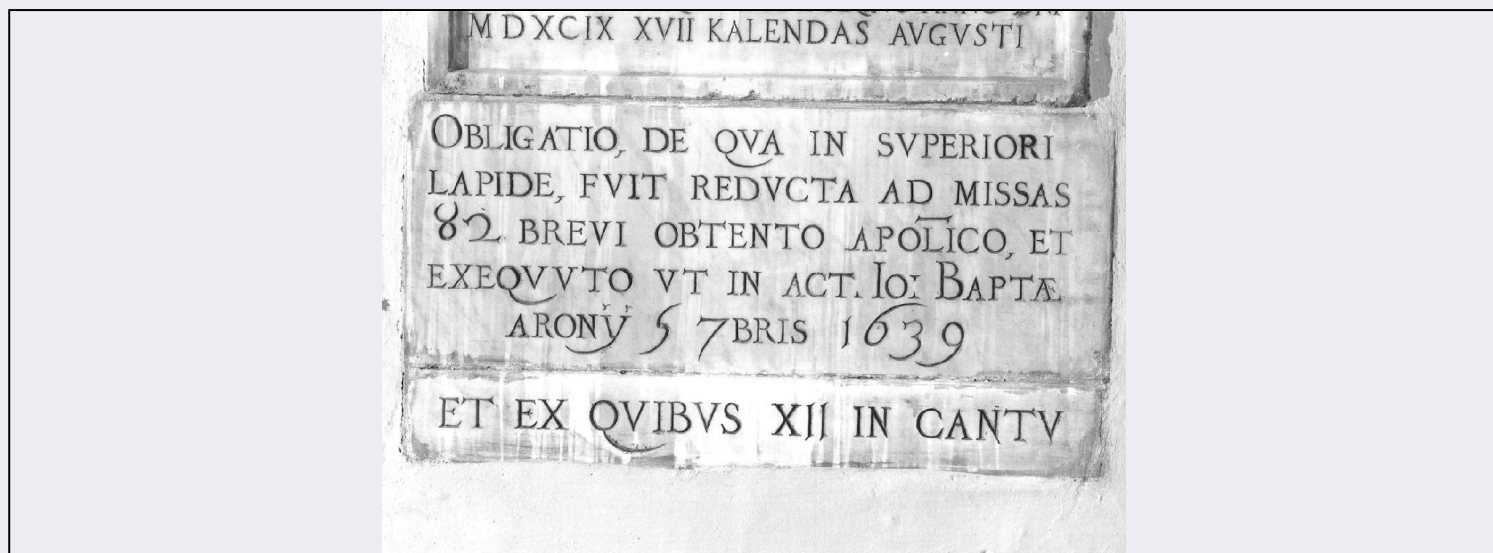 ANNO DNI
MDXCIX XVII KALENDAS AVGVSTI
OBLIGATIO, DE QVA IN SVPERIORI
LAPIDE, FVIT REDVCTA AD MISSAS
82 BREVI OBTENTO APOLICO, ET
EXEQVVTO VT IN ACT. IOI BAPTÆ
ARONIJ 5 7BRIS 1639
ET EX QVIBVS XII IN CANTV